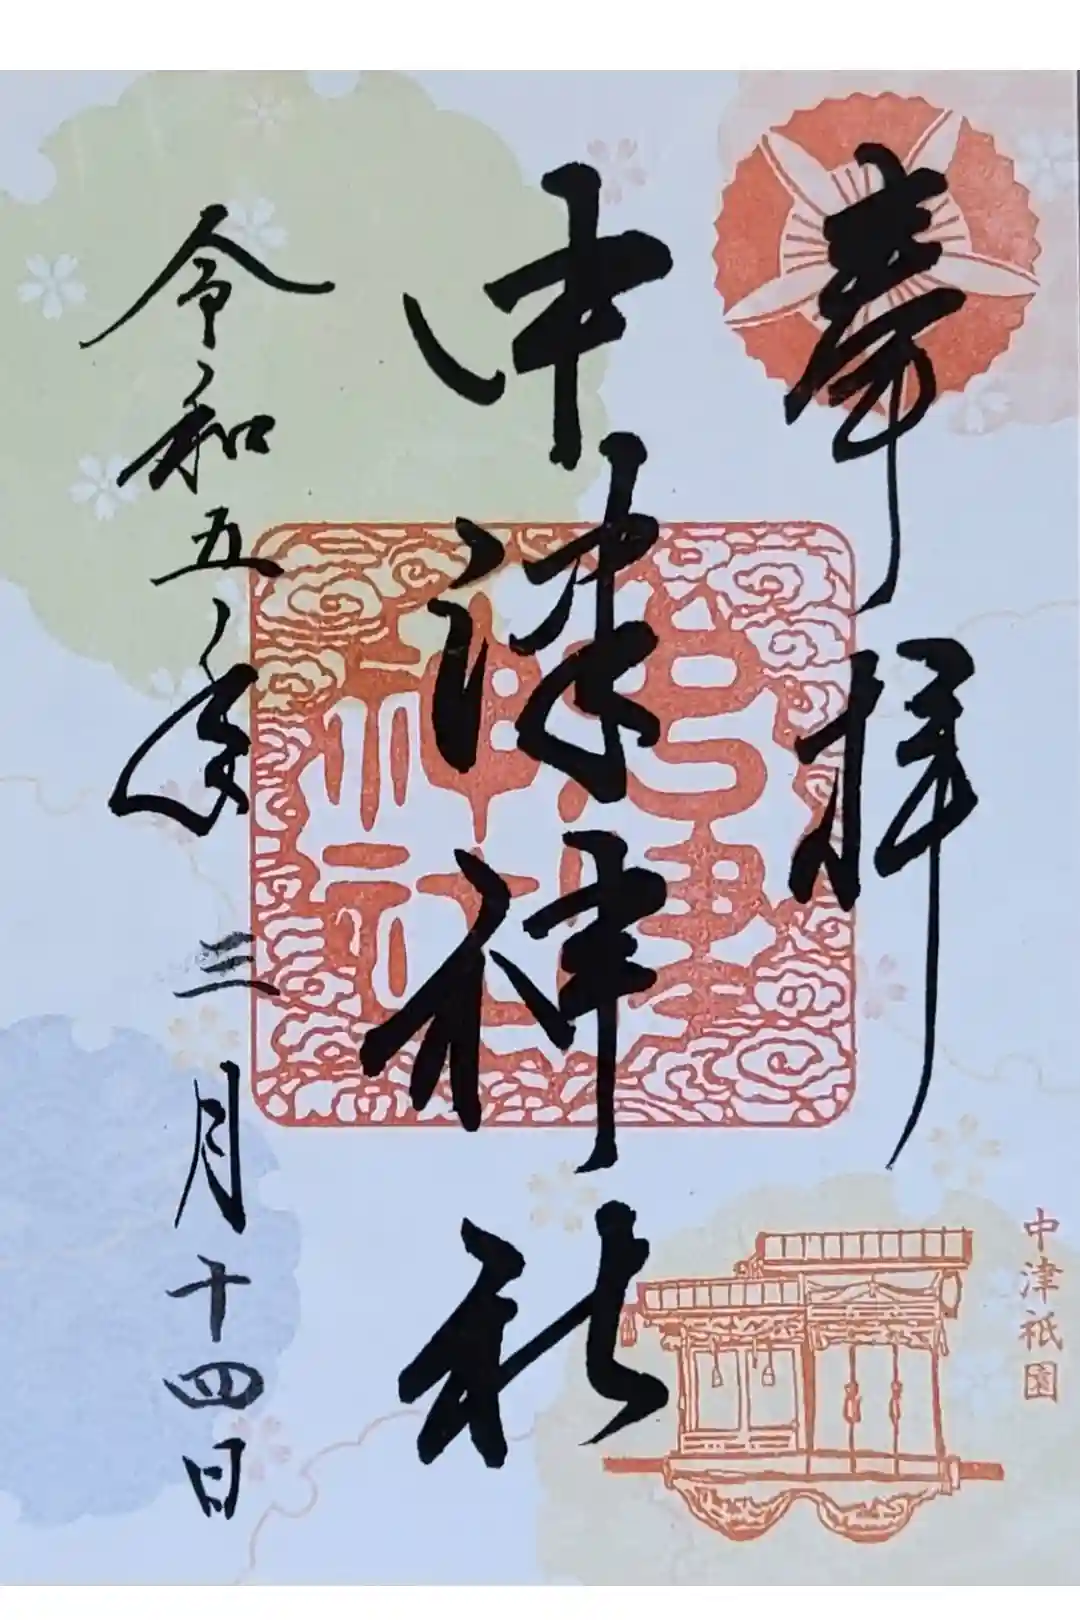 奉拝
中津神社
中津神社
令和五年三月十四日
中津祇園